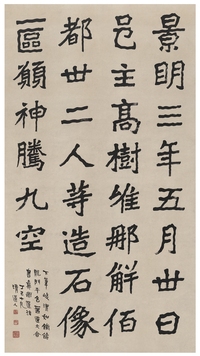 景明三年五月卅日
邑主高樹維那解佰
都卅二人等造石像
一區願神騰九空